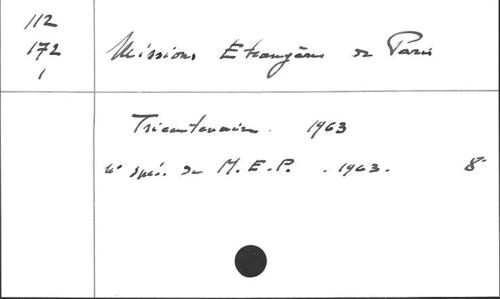 112
172
1
Missions Etrangères de Paris
Tricentenaire. 1963
n° spéc. de M.E.P. . 1963. 8°